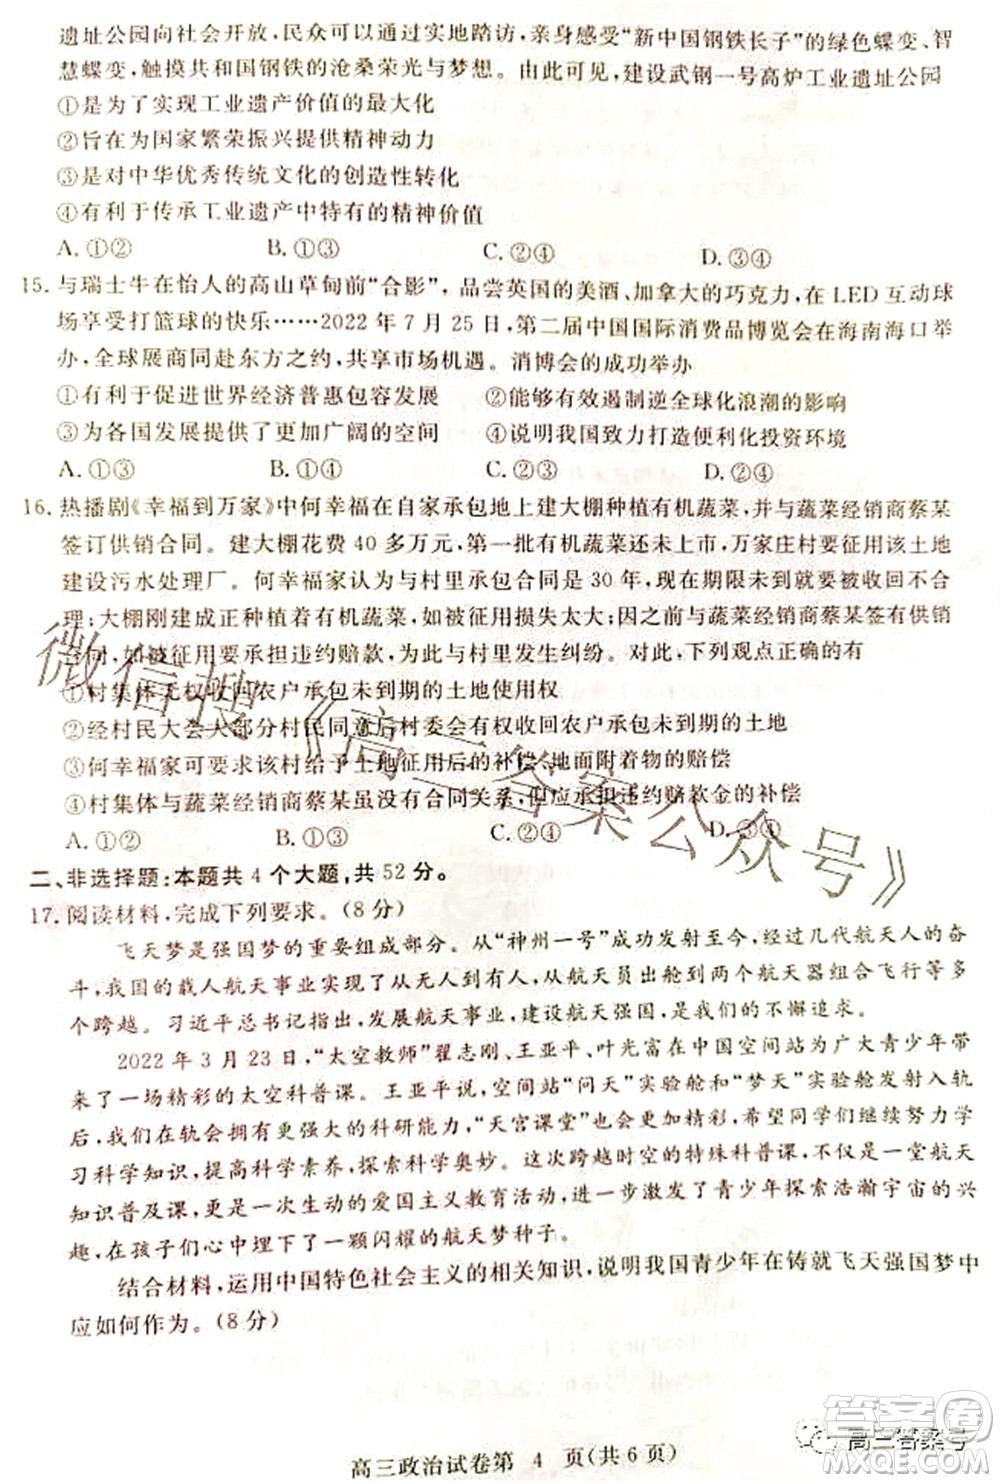 遗址公园向社会开放，民众可以通过实地踏访，亲身感受“新中国钢铁长子”的绿色蝶变、智
慧蝶变，触摸共和国钢铁的沧桑荣光与梦想。由此可见，建设武钢一号高炉工业遗址公园
①是为了实现工业遗产价值的最大化
②旨在为国家繁荣振兴提供精神动力
③是对中华优秀传统文化的创造性转化
④有利于传承工业遗产中特有的精神价值
A.①② B.①③ C.②④ D.③④
15.与瑞士牛在怡人的高山草甸前“合影”，品尝英国的美酒、加拿大的巧克力，在LED互动球
场享受打篮球的快乐……2022年7月25日，第二届中国国际消费品博览会在海南海口举
办，全球展商同赴东方之约，共享市场机遇。消博会的成功举办
①有利于促进世界经济普惠包容发展 ②能够有效遏制逆全球化浪潮的影响
③为各国发展提供了更加广阔的空间 ④说明我国致力打造便利化投资环境
A.①③ B.①④ C.②③ D.②④
16.热播剧《幸福到万家》中何幸福在自家承包地上建大棚种植有机蔬菜，并与蔬菜经销商蔡某
签订供销合同。建大棚花费40多万元，第一批有机蔬菜还未上市，万家庄村要征用该土地
建设污水处理厂。何幸福家认为与村里承包合同是30年，现在期限未到就要收回不合
理；大棚刚建成正种植着有机蔬菜，如被征用损失太大；因之前与蔬菜经销商蔡某签有供销
合同，如被征用要承担违约赔款，为此与村里发生纠纷。对此，下列观点正确的有
①村集体无权收回农户承包未到期的土地使用权
②经村民大会大部分村民同意后村委会有权收回农户承包未到期的土地
③何幸福家可要求该村给予土地征用后的补偿、地面附着物的赔偿
④村集体与蔬菜经销商蔡某虽没有合同关系，但应承担违约赔款金的补偿
A.①② B.①③ C.②④ D.③④
二、非选择题：本题共4个大题，共52分。
17.阅读材料，完成下列要求。（8分）
飞天梦是强国梦的重要组成部分。从“神州一号”成功发射至今，经过几代航天人的奋
斗，我国的载人航天事业实现了从无人到有人，从航天员出舱到两个航天器组合飞行等多
个跨越。习近平总书记指出，发展航天事业，建设航天强国，是我们的不懈追求。
2022年3月23日，“太空教师”翟志刚、王亚平、叶光富在中国空间站为广大青少年带
来了一场精彩的太空科普课。王亚平说，空间站“问天”实验舱和“梦天”实验舱发射入轨
后，我们在轨会有更强大的科研能力，“天宫课堂”也会更加精彩，希望同学们继续努力学
习科学知识，提高科学素养，探索科学奥妙。这次跨越时空的特殊科普课，不仅是一次天文
知识普及课，更是一次生动的爱国主义教育活动，进一步激发了青少年探索浩瀚宇宙的兴
趣，在孩子们心中埋下了一颗闪耀的航天梦种子。
结合材料，运用中国特色社会主义的相关知识，说明我国青少年在铸就飞天强国梦中
应如何作为。（8分）
高三政治试卷第 4 页（共6页）
微信搜《高三答案公众号》
高三答案号
答案圈
MXQE.COM